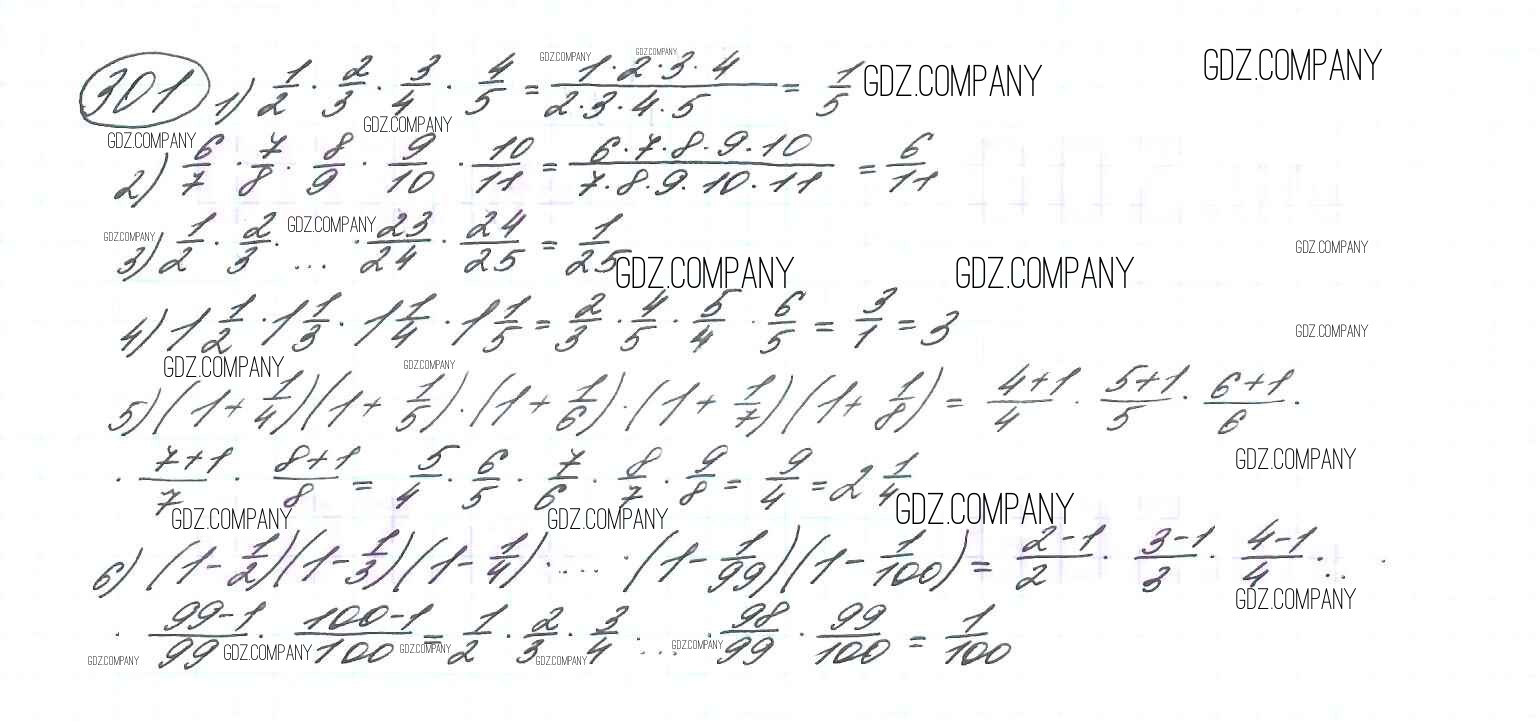 301 1) 1/2 · 2/3 · 3/4 · 4/5 = (1·2·3·4)/(2·3·4·5) = 1/5 GDZ.COMPANY GDZ.COMPANY GDZ.COMPANY GDZ.COMPANY
GDZ.COMPANY GDZ.COMPANY
2) 6/7 · 7/8 · 8/9 · 9/10 · 10/11 = (6·7·8·9·10)/(7·8·9·10·11) = 6/11
GDZ.COMPANY GDZ.COMPANY GDZ.COMPANY
3) 1/2 · 2/3 · ... · 23/24 · 24/25 = 1/25 GDZ.COMPANY GDZ.COMPANY
4) 1 1/2 · 1 1/3 · 1 1/4 · 1 1/5 = 2/3 · 4/5 · 5/4 · 6/5 = 3/1 = 3 GDZ.COMPANY
GDZ.COMPANY GDZ.COMPANY
5) (1 + 1/4)(1 + 1/5) · (1 + 1/6) · (1 + 1/7)(1 + 1/8) = (4+1)/4 · (5+1)/5 · (6+1)/6 ·
· (7+1)/7 · (8+1)/8 = 5/4 · 6/5 · 7/6 · 8/7 · 9/8 = 9/4 = 2 1/4 GDZ.COMPANY
GDZ.COMPANY GDZ.COMPANY GDZ.COMPANY
6) (1 - 1/2)(1 - 1/3)(1 - 1/4) · ... · (1 - 1/99)(1 - 1/100) = (2-1)/2 · (3-1)/3 · (4-1)/4 · ...
GDZ.COMPANY
· (99-1)/99 · (100-1)/100 = 1/2 · 2/3 · 3/4 · ... · 98/99 · 99/100 = 1/100
GDZ.COMPANY GDZ.COMPANY GDZ.COMPANY GDZ.COMPANY GDZ.COMPANY